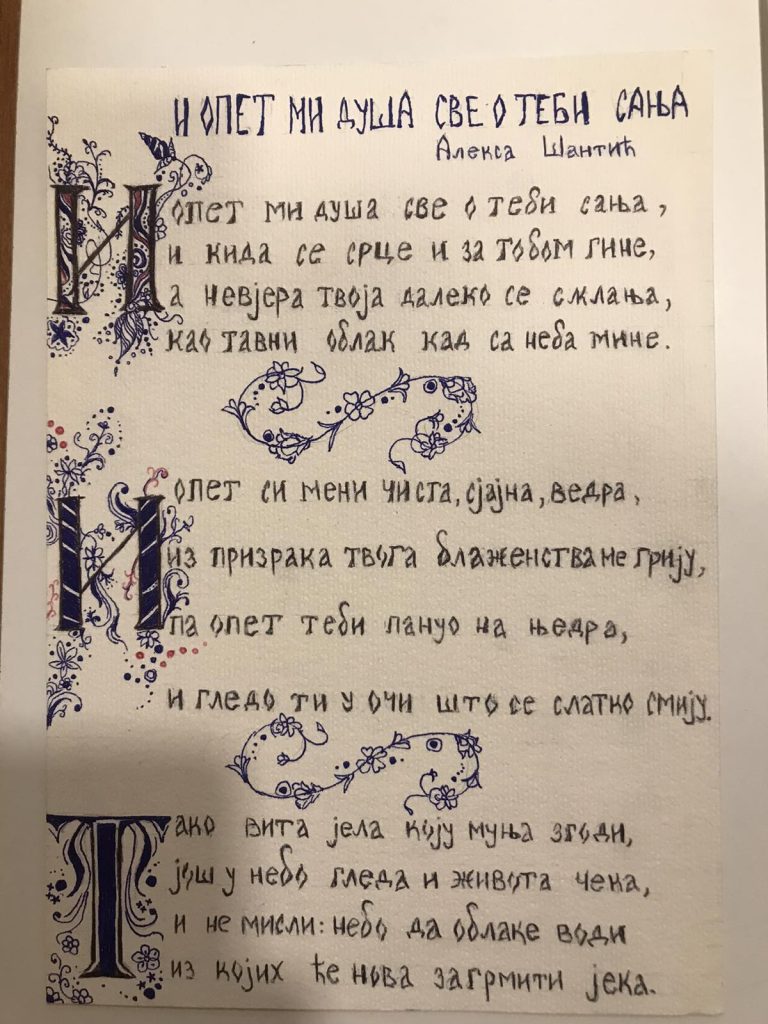 И ОПЕТ МИ ДУША СВЕ О ТЕБИ САЊА
Алекса Шантић
И опет ми душа све о теби сања,
и кида се срце и за тобом гине,
а невјера твоја далеко се склања,
као тавни облак кад са неба мине.
И опет си мени чиста, сјајна, ведра,
из призрака твога блаженства ме грију,
па опет теби пануо на њедра,
и гледо ти у очи што се слатко смију.
Тако вита јела коју муња згоди,
још у небо гледа и живота чека,
и не мисли: небо да облаке води
из којих ће нова загрмити јека.